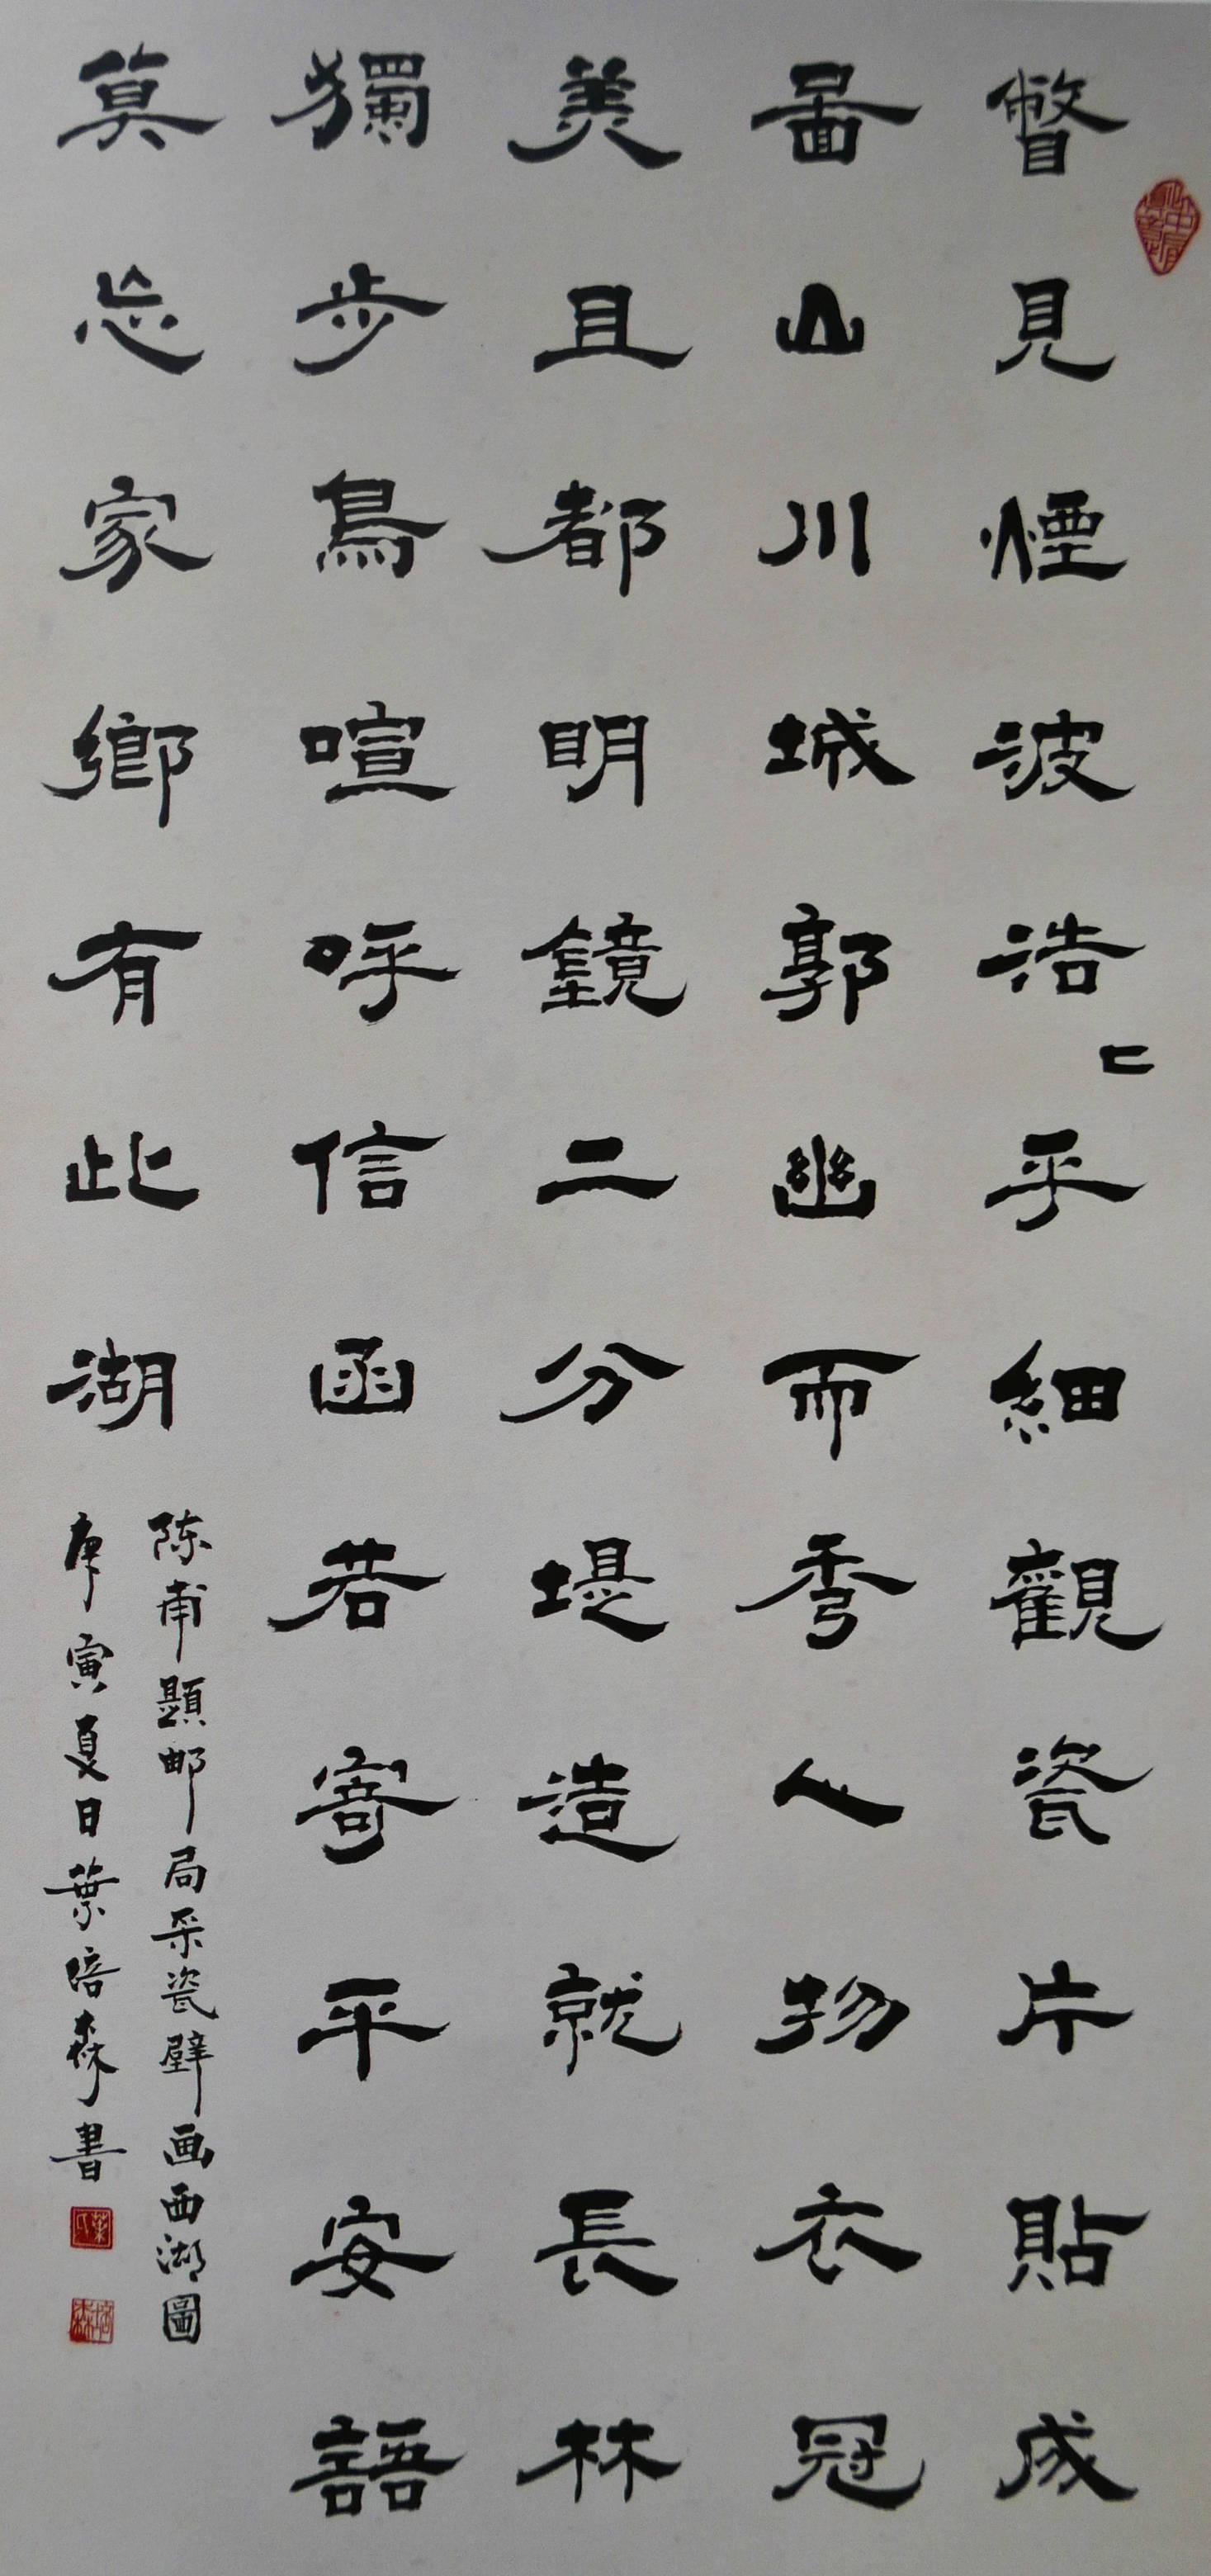 瞥見煙波浩〻乎細觀瓷片貼成
啚山川城郭幽而秀人物衣冠
美且都明鏡二分堤造就長林
獨步鳥喧呼信函若寄平安語
莫忘家鄉有此湖
陈甫題邮局采瓷壁画西湖圖
庚寅夏日葉培森書